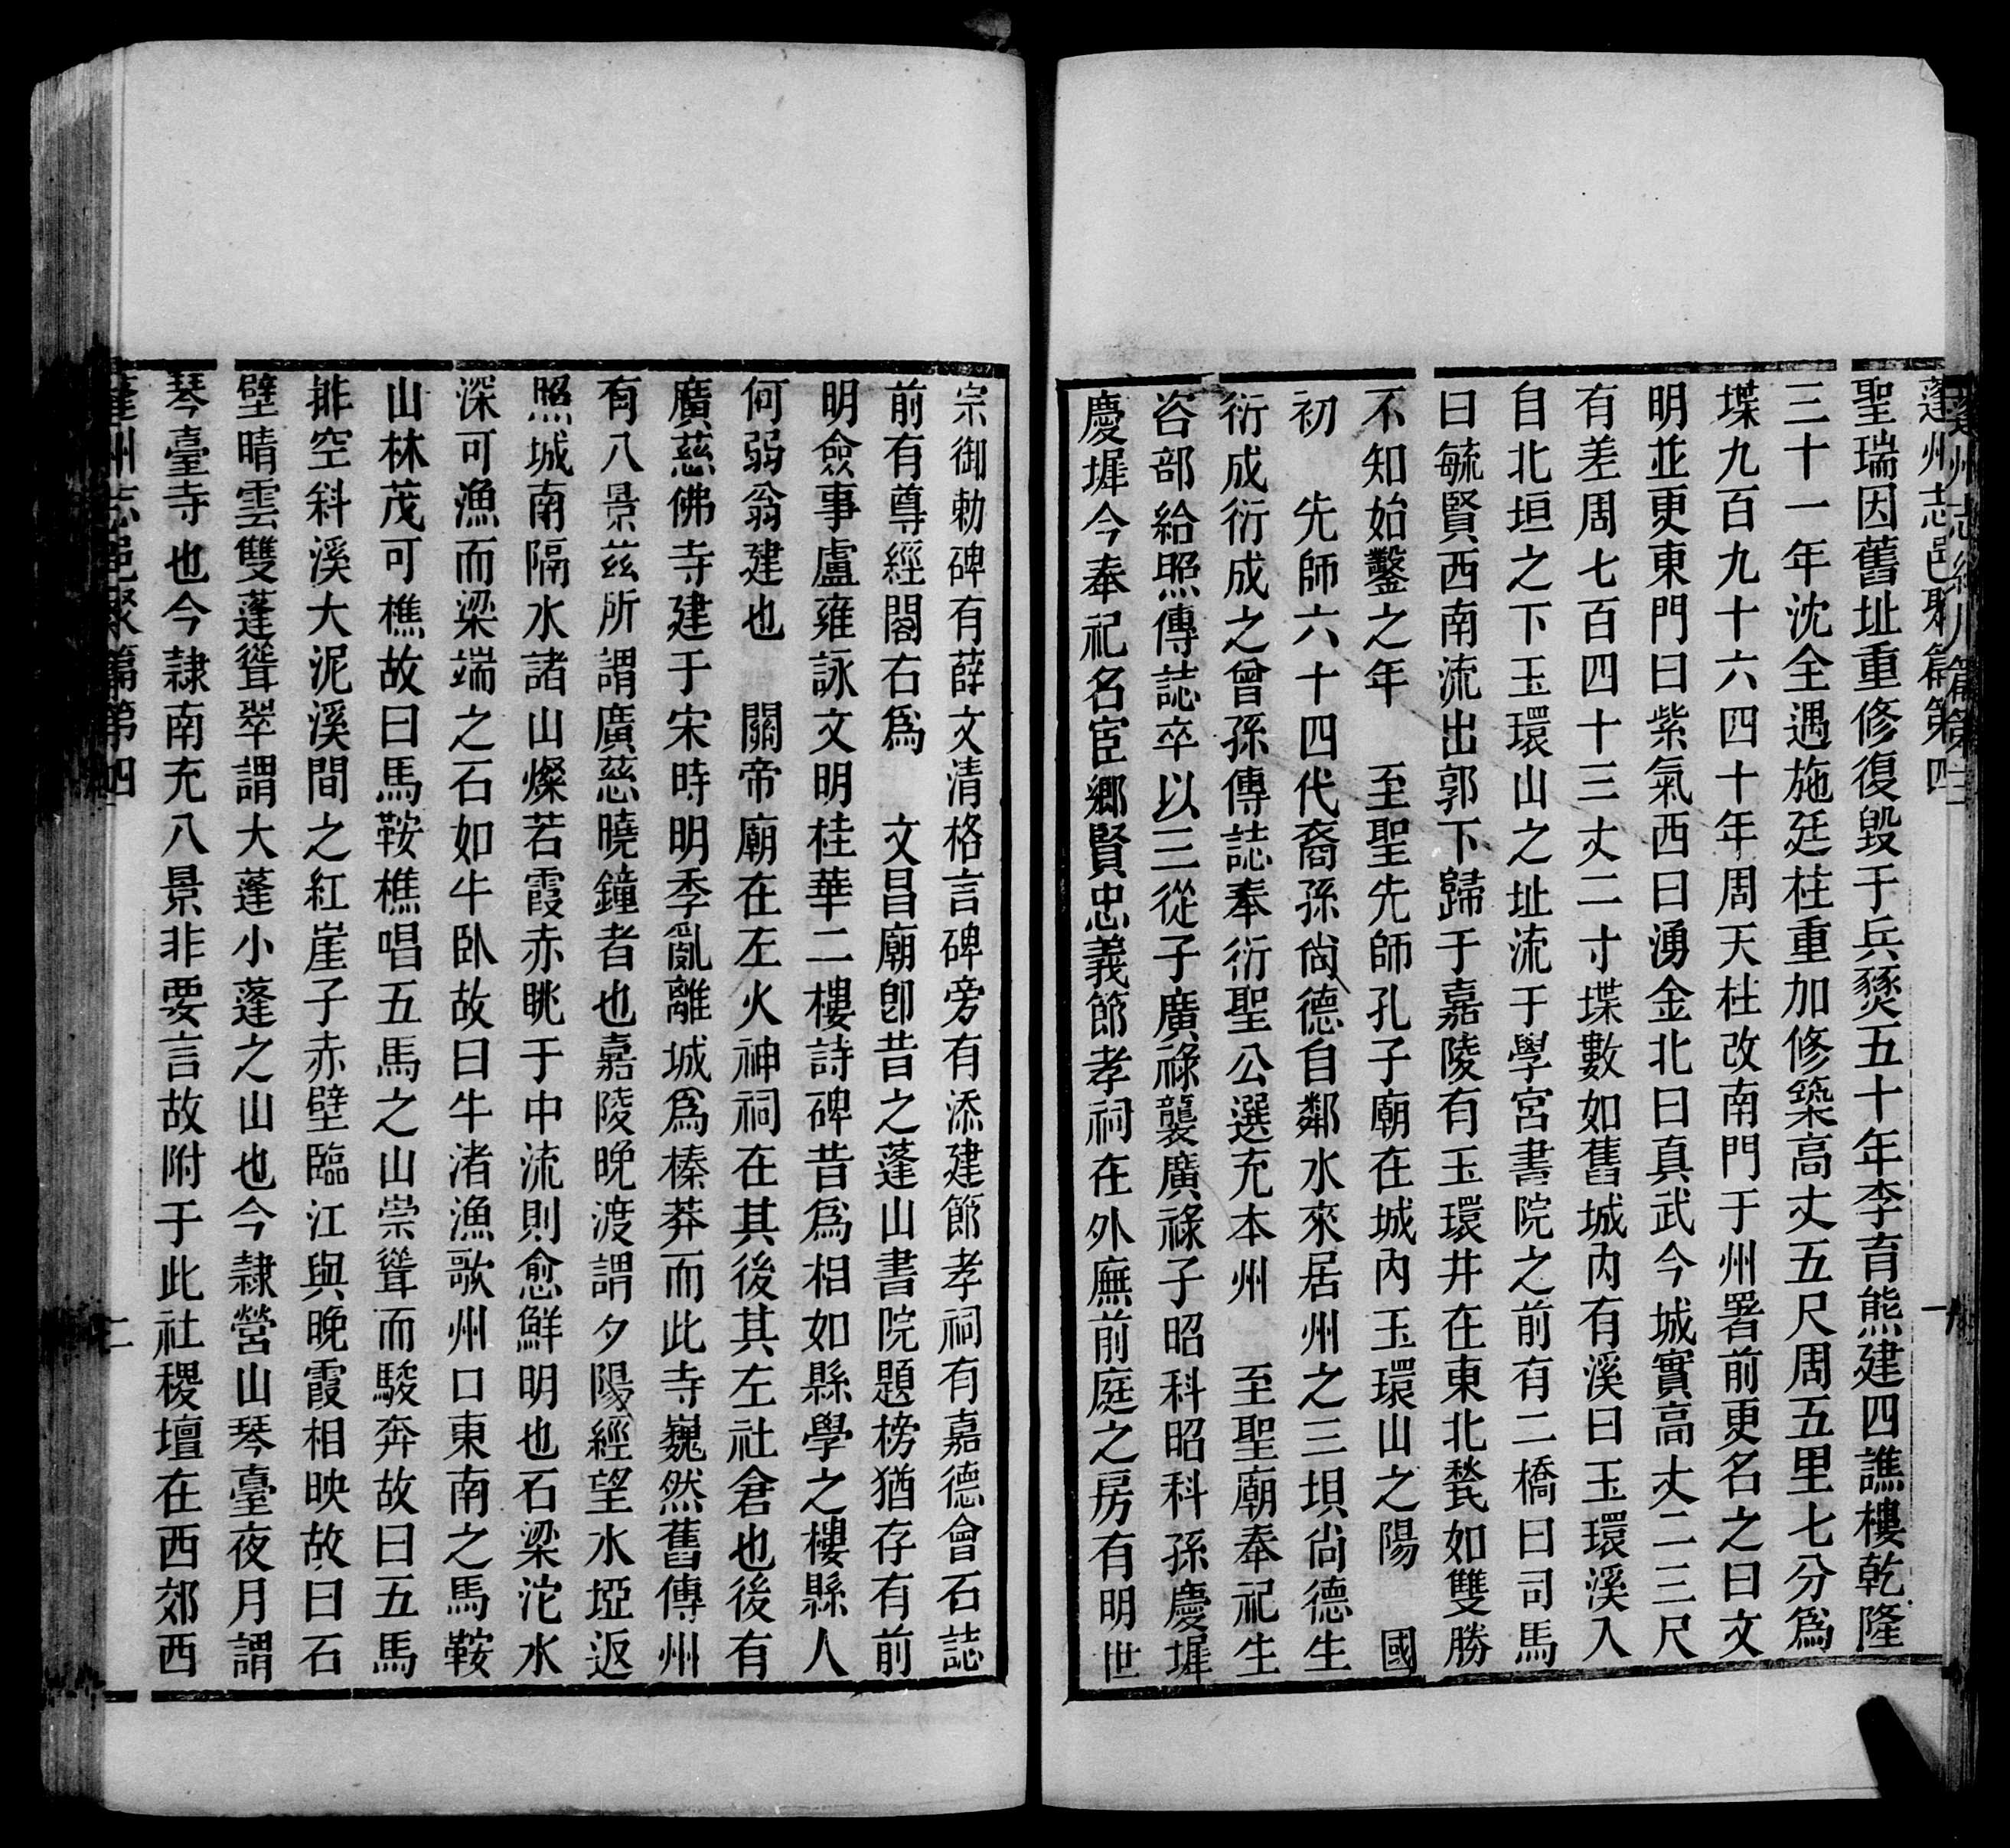 蓬州志邑聚篇第四　一
聖瑞因舊址重修復毀于兵燹五十年李育熊建四譙樓乾隆
三十一年沈全遇施廷柱重加修築高丈五尺周五里七分爲
堞九百九十六四十年周天柱改南門于州署前更名之曰文
明並更東門曰紫氣西曰湧金北曰真武今城實高丈二三尺
有差周七百四十三丈二寸堞數如舊城內有溪曰玉環溪入
自北垣之下玉環山之址流于學宮書院之前有二橋曰司馬
曰毓賢西南流出郭下歸于嘉陵有玉環井在東北甃如雙勝
不知始鑿之年　至聖先師孔子廟在城內玉環山之陽　國
初　先師六十四代裔孫尙德自鄰水來居州之三垻尙德生
衍成衍成之曾孫傳誌奉衍聖公選充本州　至聖廟奉祀生
咨部給照傳誌卒以三從子廣祿襲廣祿子昭科昭科孫慶墀
慶墀今奉祀名宦鄉賢忠義節孝祠在外廡前庭之房有明世
宗御勅碑有薛文清格言碑旁有添建節孝祠有嘉德會石誌
前有尊經閣右爲　文昌廟卽昔之蓬山書院題榜猶存有前
明僉事盧雍詠文明桂華二樓詩碑昔爲相如縣學之樓縣人
何弱翁建也　關帝廟在左火神祠在其後其左社倉也後有
廣慈佛寺建于宋時明季亂離城爲榛莽而此寺巍然舊傳州
有八景茲所謂廣慈曉鐘者也嘉陵晚渡謂夕陽經望水埡返
照城南隔水諸山燦若霞赤眺于中流則愈鮮明也石梁沱水
深可漁而梁端之石如牛臥故曰牛渚漁歌州口東南之馬鞍
山林茂可樵故曰馬鞍樵唱五馬之山崇聳而駿奔故曰五馬
排空斜溪大泥溪間之紅崖子赤壁臨江與晚霞相映故曰石
壁晴雲雙蓬聳翠謂大蓬小蓬之山也今隷營山琴臺夜月謂
琴臺寺也今隷南充八景非要言故附于此社稷壇在西郊西
蓬州志邑聚篇第四　二